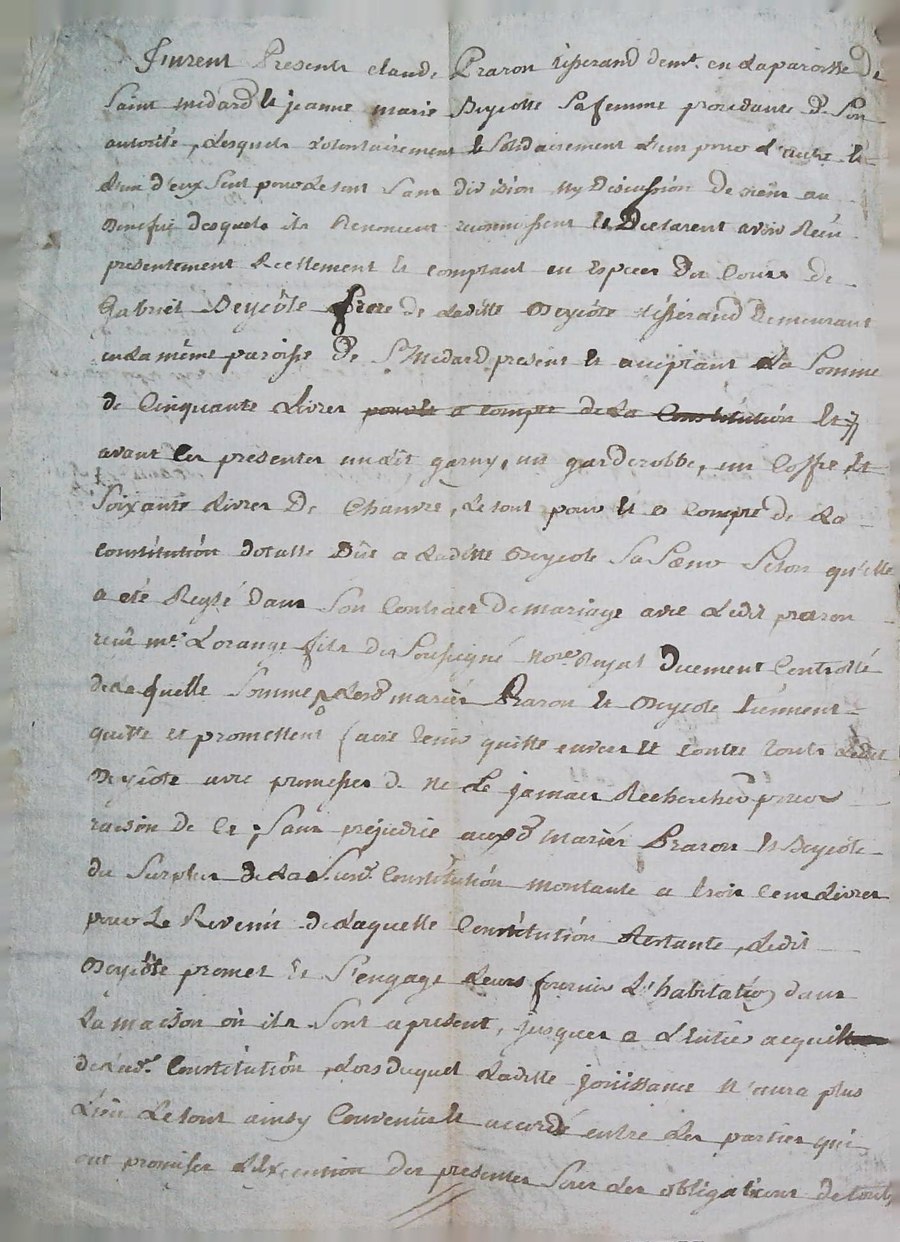 Furent Presents claude Praron tisserand demt. en la paroisse de
Saint médard et jeanne marie Deycotte sa femme procedante de son
autorité, lesquels volontairement et solidairement l'un pour l'autre et
l'un d'eux seul pour le tout sans division ny discussion de biens au
benefice desquels ils Renoncent reconnoissent et Declarent avoir Recu
presentement Reellement et comptant en Especes du Cours de
Gabriel Deycôte frere de laditte Deycôte tisserand demeurant
en la même paroisse de St. Medard present et acceptant la Somme
de Cinquante Livres pour et a compte de la Constitution et
avant les presentes un lit garny, un garderobbe, un Coffre et
Soixante livres De Chanvre, Le tout pour et a Compte de la
constitution dotalle Dûe a laditte Deycote sa Sœur selon qu'elle
a eté Reglé dans son Contract de mariage avec Ledit praron
reçu me. Lorange fils du soussigné nore. Royal Duement Controllé
de laquelle somme lesd. mariés Praron et Deycote tiennent
quitte et promettent faire tenir quitte envers et contre touts Ledit
Deycôte avec promesses de ne Le jamais Rechercher pour
raison de ce, sans prejudice auxd. mariés Praron et Deycôte
du surplus de la susd. Constitution montante a trois Cent Livres
pour Le Revenu de Laquelle Constitution Restante, Ledit
Deycôte promet et s'engage leurs fournir L'habitation dans
La maison où ils sont a present, jusques a L'entier acquit
de lad. Constitution, Lors duquel Laditte joüissance n'aura plus
Lieu Le tout ainsy Convenu et accordé entre les parties qui
ont promises L'Execution des presentes sous les obligations de tous,